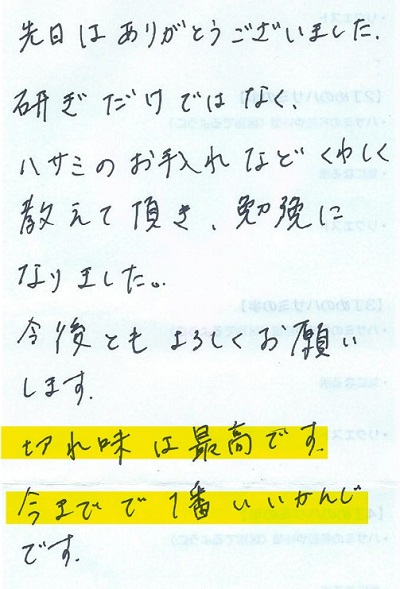 先日はありがとうございました.
研ぎだけではなく、
ハサミのお手入れなどくわしく
教えて頂き、勉強に
なりました。
今後ともよろしくお願い
します.
切れ味は最高です.
今までで1番いいかんじ
です.